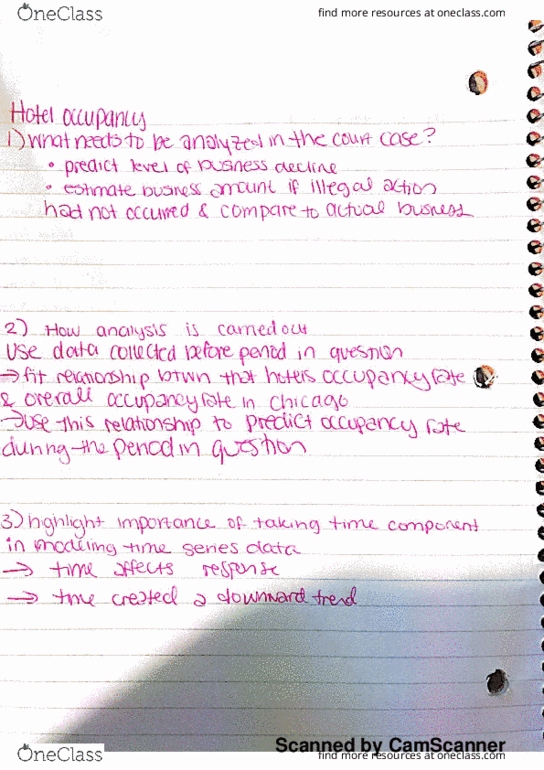 OneClass
find more resources at oneclass.com
Hotel occupancy
1) What needs to be analyzed in the court case?
• predict level of business decline
• estimate business amount if illegal action
had not occurred & compare to actual business
2) How analysis is carried out
Use data collected before period in question
→ fit relationship btwn that hotels occupancy rate
& overall occupancy rate in Chicago
→ Use this relationship to predict occupancy rate
during the period in question
3) highlight importance of taking time component
in modeling time series data
→ time affects response
→ time created a downward trend
Scanned by CamScanner
OneClass
find more resources at oneclass.com